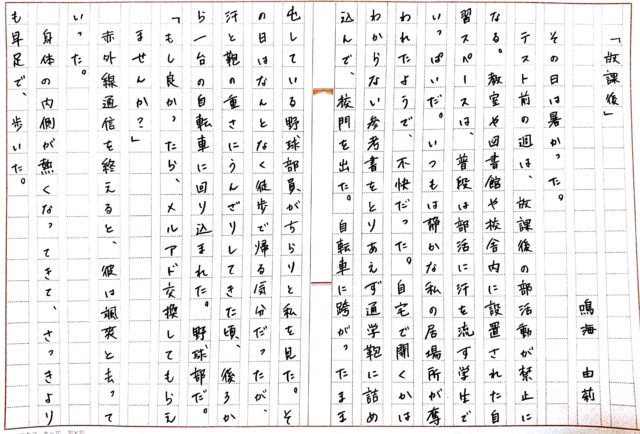 「放課後」
鳴海 由莉
その日は暑かった。
テスト前の週は、放課後の部活動が禁止に
なる。教室や図書館や校舎内に設置された自
習スペースは、普段は部活に汗を流す学生で
いっぱいだ。いつもは静かな私の居場所が奪
われたようで、不快だった。自宅で開くかは
わからない参考書をとりあえず通学鞄に詰め
込んで、校門を出た。自転車に跨がったまま
屯している野球部員がちらりと私を見た。そ
の日はなんとなく徒歩で帰る気分だったが、
汗と鞄の重さにうんざりしてきた頃、後ろか
ら一台の自転車に回り込まれた。野球部だ。
「もし良かったら、メルアド交換してもらえ
ませんか?」
赤外線通信を終えると、彼は颯爽と去って
いった。
身体の内側が熱くなってきて、さっきより
も早足で、歩いた。